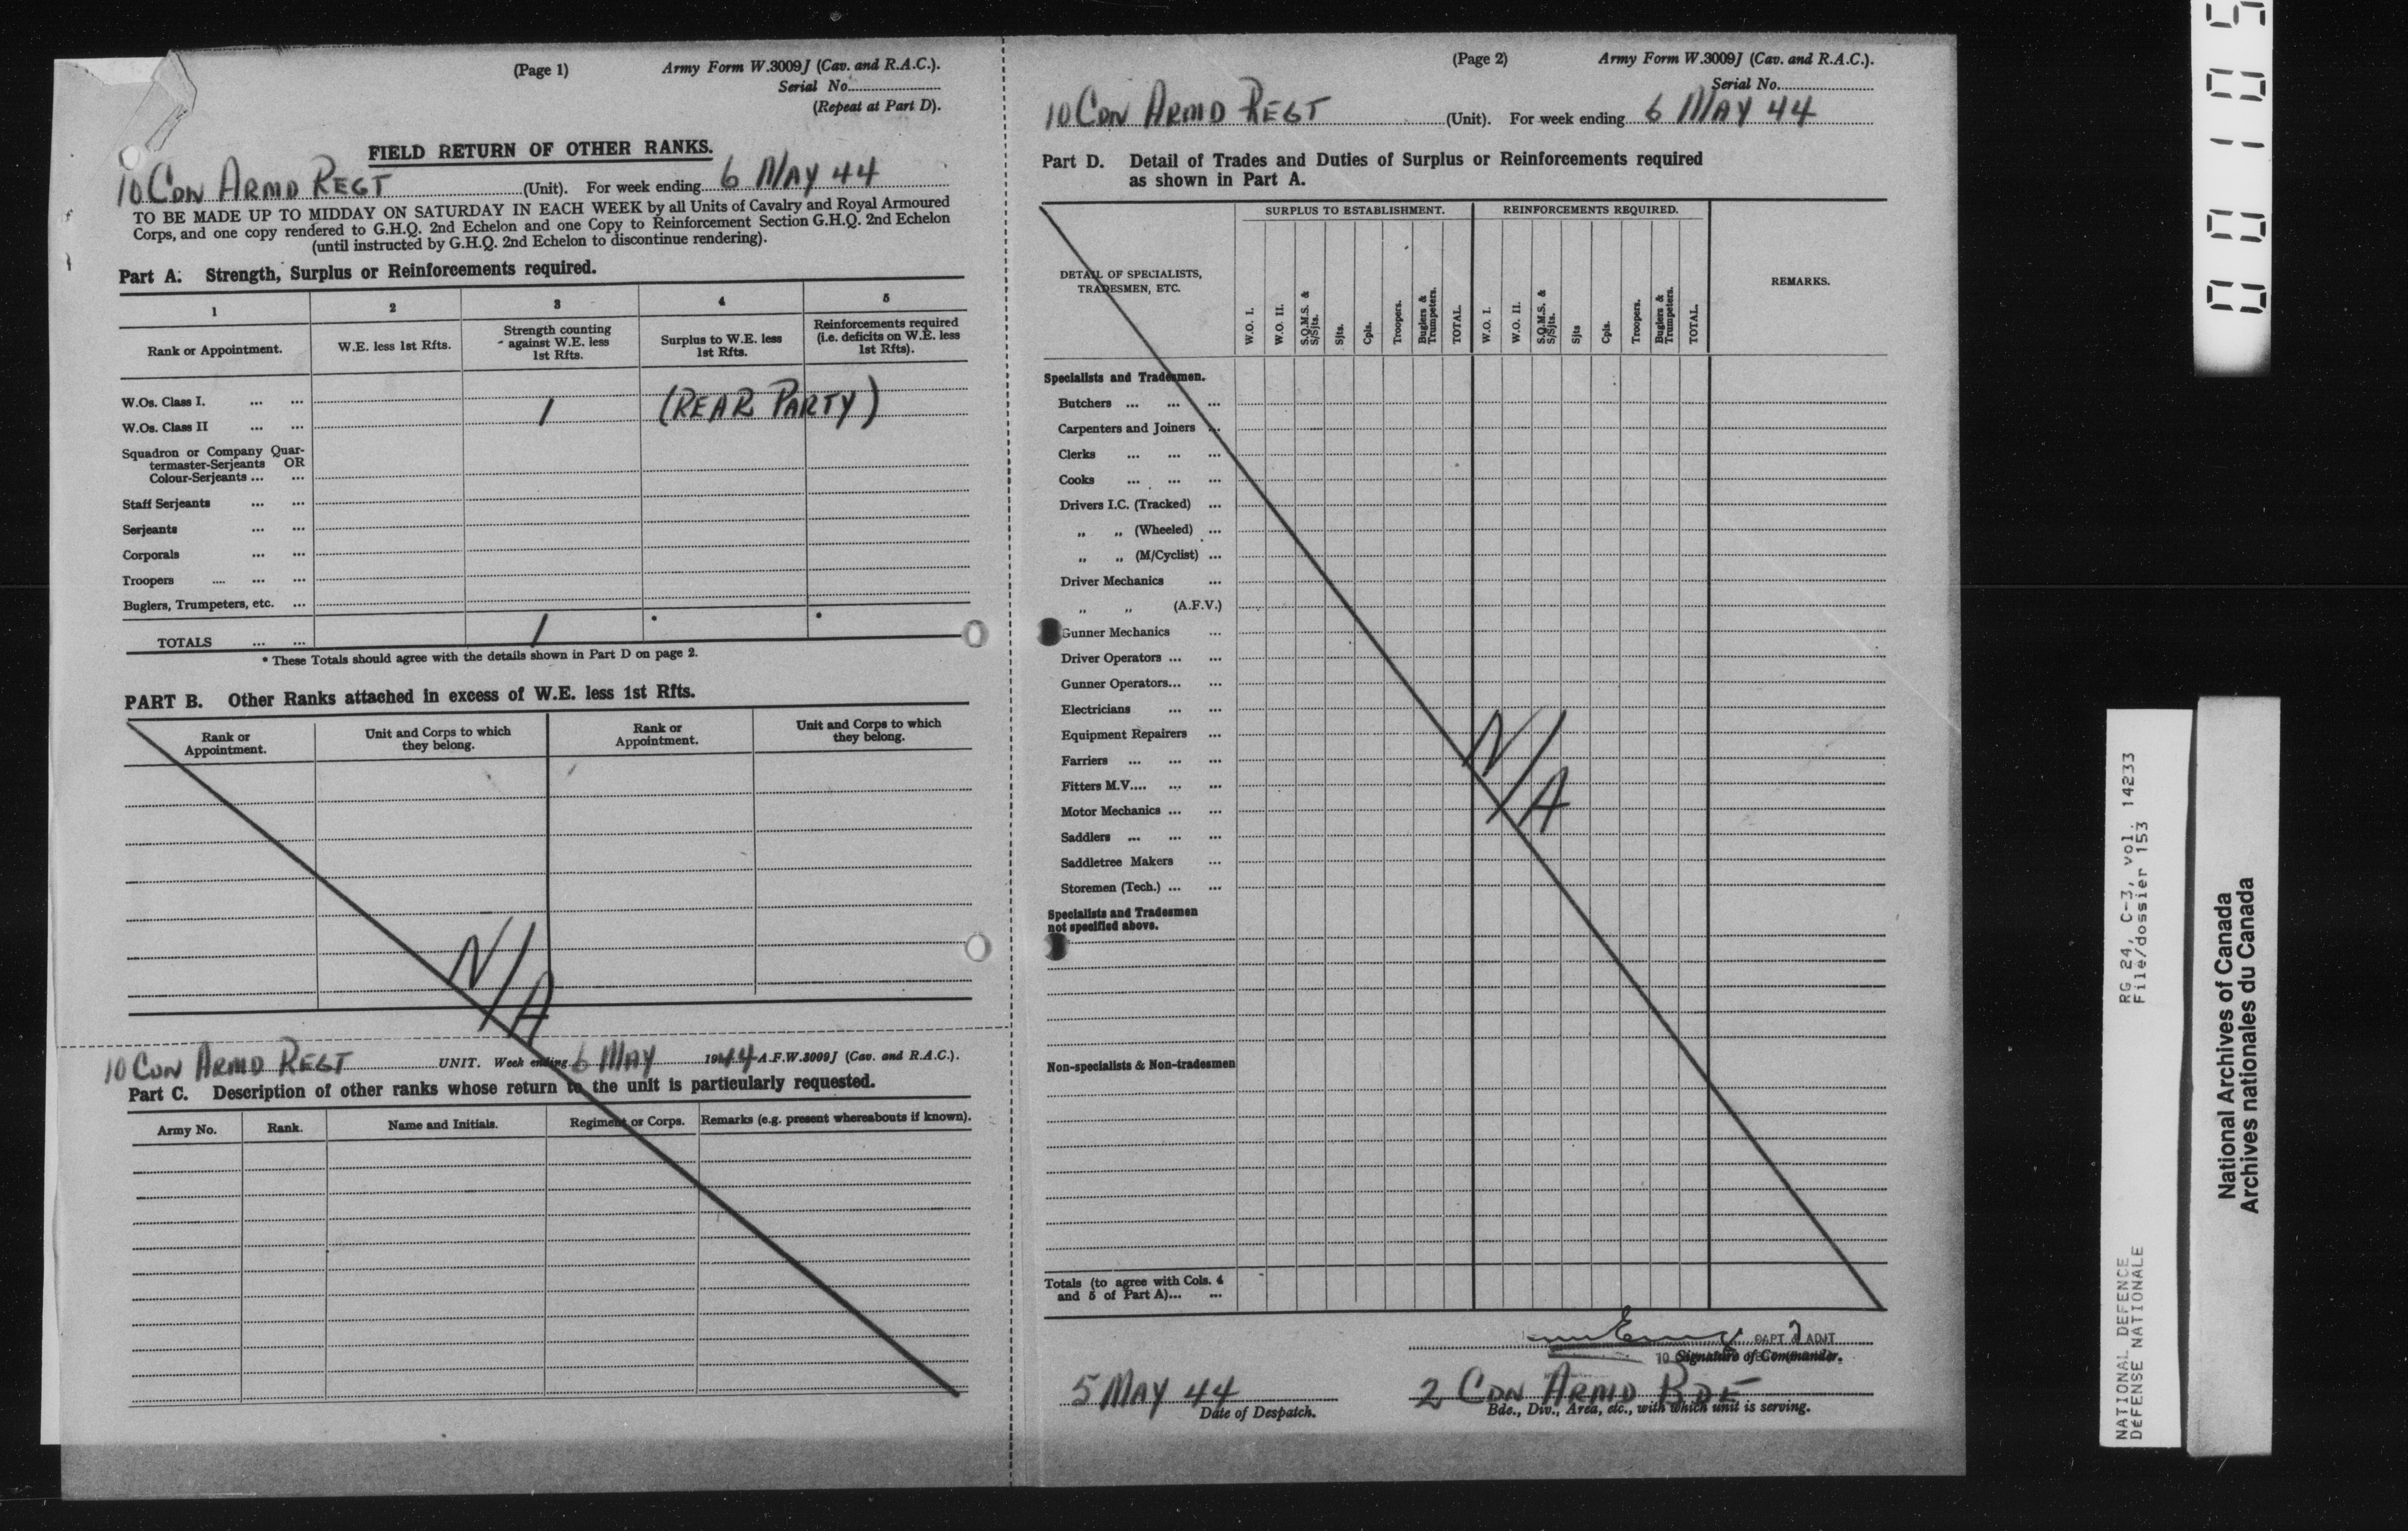 (Page 1)
Army Form W.3009J (Cav. and R.A.C.).
Serial No.
(Repeat at Part D).
FIELD RETURN OF OTHER RANKS.
10 CDN ARMD REGT (Unit). For week ending 6 MAY 44
TO BE MADE UP TO MIDDAY ON SATURDAY IN EACH WEEK by all Units of Cavalry and Royal Armoured
Corps, and one copy rendered to G.H.Q. 2nd Echelon and one Copy to Reinforcement Section G.H.Q. 2nd Echelon
(until instructed by G.H.Q. 2nd Echelon to discontinue rendering).
Part A. Strength, Surplus or Reinforcements required.
1 2 3 4 5
Rank or Appointment.
W.E. less 1st Rfts.
Strength counting
against W.E. less
1st Rfts.
Surplus to W.E. less
1st Rfts.
Reinforcements required
(i.e. deficits on W.E. less
1st Rfts).
W.Os. Class I. ... ...
W.Os. Class II ... ... 1 (REAR PARTY)
Squadron or Company Quar-
termaster-Serjeants OR
Colour-Serjeants ... ...
Staff Serjeants ... ...
Serjeants ... ...
Corporals ... ...
Troopers .... ... ...
Buglers, Trumpeters, etc. ...
TOTALS ... ... 1 * *
* These Totals should agree with the details shown in Part D on page 2.
PART B. Other Ranks attached in excess of W.E. less 1st Rfts.
Rank or
Appointment.
Unit and Corps to which
they belong.
Rank or
Appointment.
Unit and Corps to which
they belong.
N/A
10 CDN ARMD REGT UNIT. Week ending 6 MAY 1944 A.F.W.3009J (Cav. and R.A.C.).
Part C. Description of other ranks whose return to the unit is particularly requested.
Army No. Rank. Name and Initials. Regiment or Corps. Remarks (e.g. present whereabouts if known).
(Page 2)
Army Form W.3009J (Cav. and R.A.C.).
Serial No.
10 CDN ARMD REGT (Unit). For week ending 6 MAY 44
Part D. Detail of Trades and Duties of Surplus or Reinforcements required
as shown in Part A.
SURPLUS TO ESTABLISHMENT. REINFORCEMENTS REQUIRED.
DETAIL OF SPECIALISTS,
TRADESMEN, ETC.
W.O. I.
W.O. II.
S.Q.M.S. &
S/Sjts.
Sjts.
Cpls.
Troopers.
Buglers &
Trumpeters.
TOTAL.
W.O. I.
W.O. II.
S.Q.M.S. &
S/Sjts.
Sjts
Cpls.
Troopers.
Buglers &
Trumpeters.
TOTAL.
REMARKS.
Specialists and Tradesmen.
Butchers ... ... ...
Carpenters and Joiners ...
Clerks ... ... ...
Cooks ... ... ...
Drivers I.C. (Tracked) ...
„ „ (Wheeled) ...
„ „ (M/Cyclist) ...
Driver Mechanics ...
„ „ (A.F.V.)
Gunner Mechanics ...
Driver Operators ... ...
Gunner Operators... ...
Electricians ... ...
Equipment Repairers ...
Farriers ... ... ...
Fitters M.V.... ... ...
Motor Mechanics ... ...
Saddlers ... ... ...
Saddletree Makers ...
Storemen (Tech.) ... ...
N/A
Specialists and Tradesmen
not specified above.
Non-specialists & Non-tradesmen
Totals (to agree with Cols. 4
and 5 of Part A)... ...
CAPT & ADJT
10
Signature of Commander.
5 MAY 44
Date of Despatch.
2 CDN ARMD BDE
Bde., Div., Area, etc., with which unit is serving.
NATIONAL DEFENCE RG 24, C-3, vol. 14233
DéFENSE NATIONALE File/dossier 153
National Archives of Canada
Archives nationales du Canada